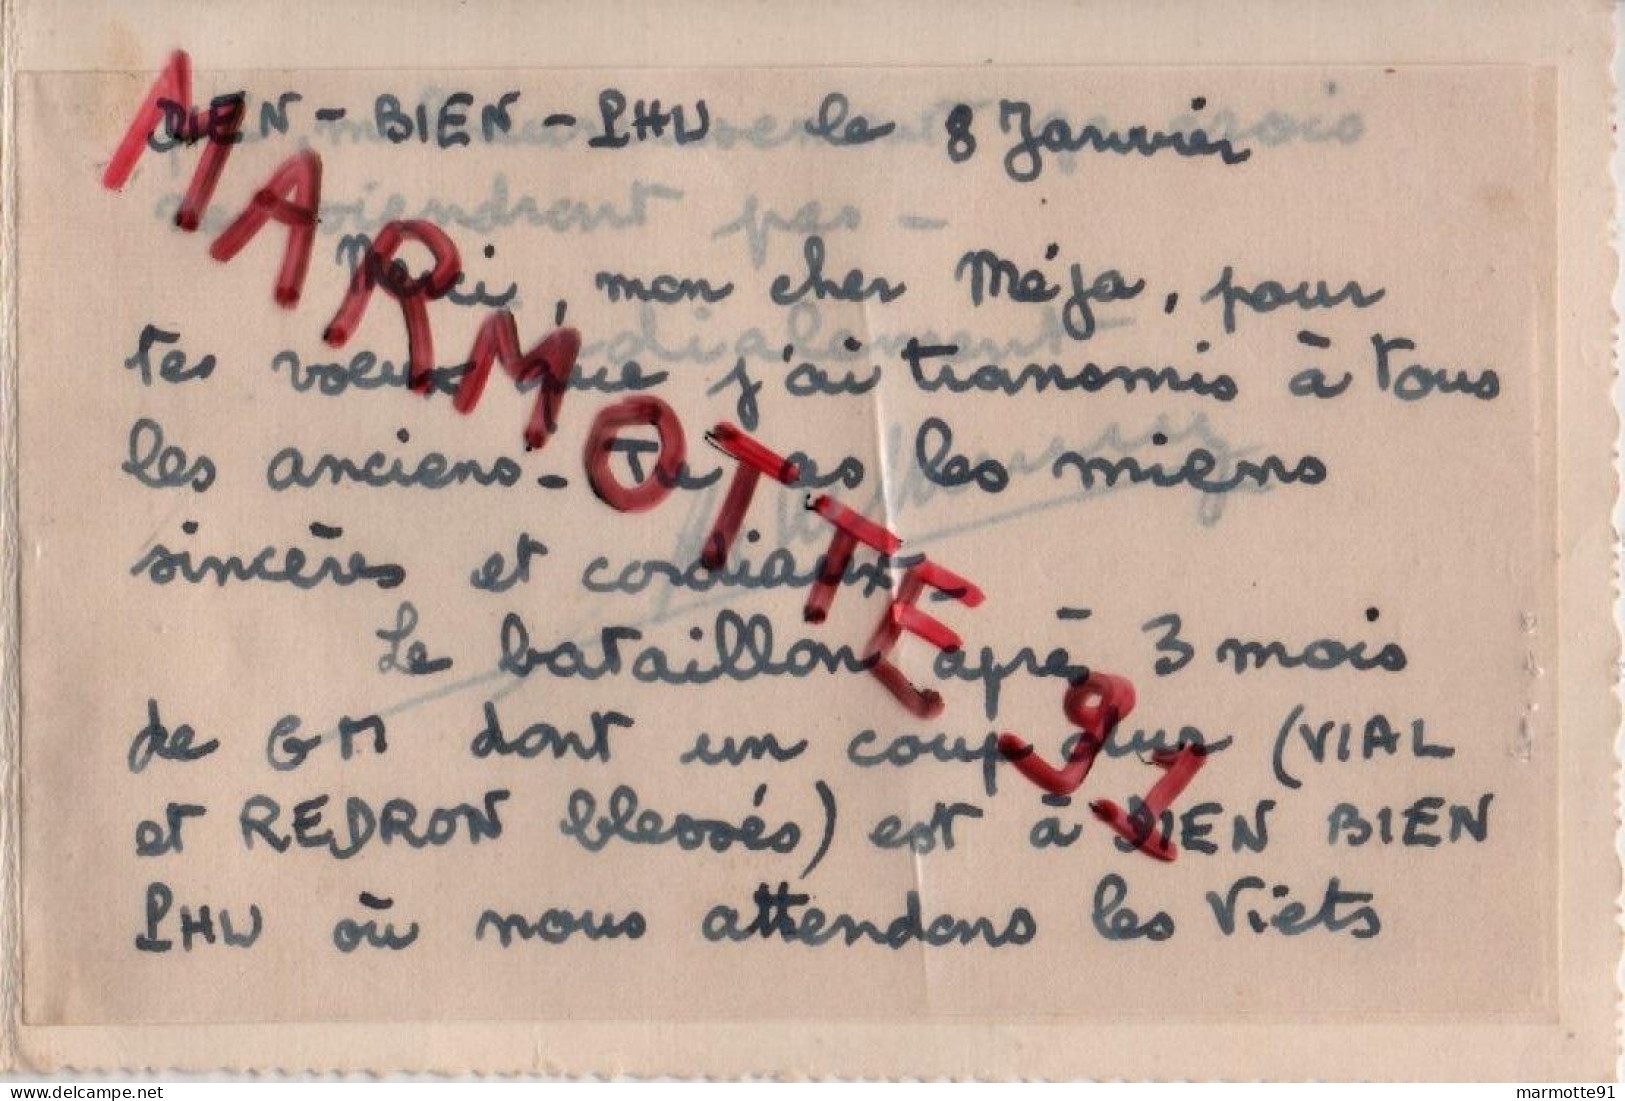 DIEN-BIEN-PHU le 8 Janvier
Merci, mon cher Méja, pour
tes voeux que j'ai transmis à tous
les anciens - Tu as les miens
sincères et cordiaux -
Le bataillon après 3 mois
de GM dont un coup dur (VIAL
et REDRON blessés) est à DIEN BIEN
PHU où nous attendons les Viets
viendront pas -
MARMOTTE 91
marmotte91